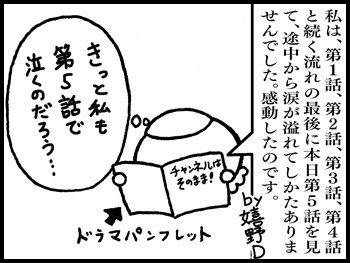 私は、第1話、第2話、第3話、第4話
と続く流れの最後に本日第5話を見
て、途中から涙が溢れてしかたありま
せんでした。感動したのです。
by嬉野D
きっと私も
第5話で
泣くのだろう…
チャンネルは
そのまま!
ドラマパンフレット